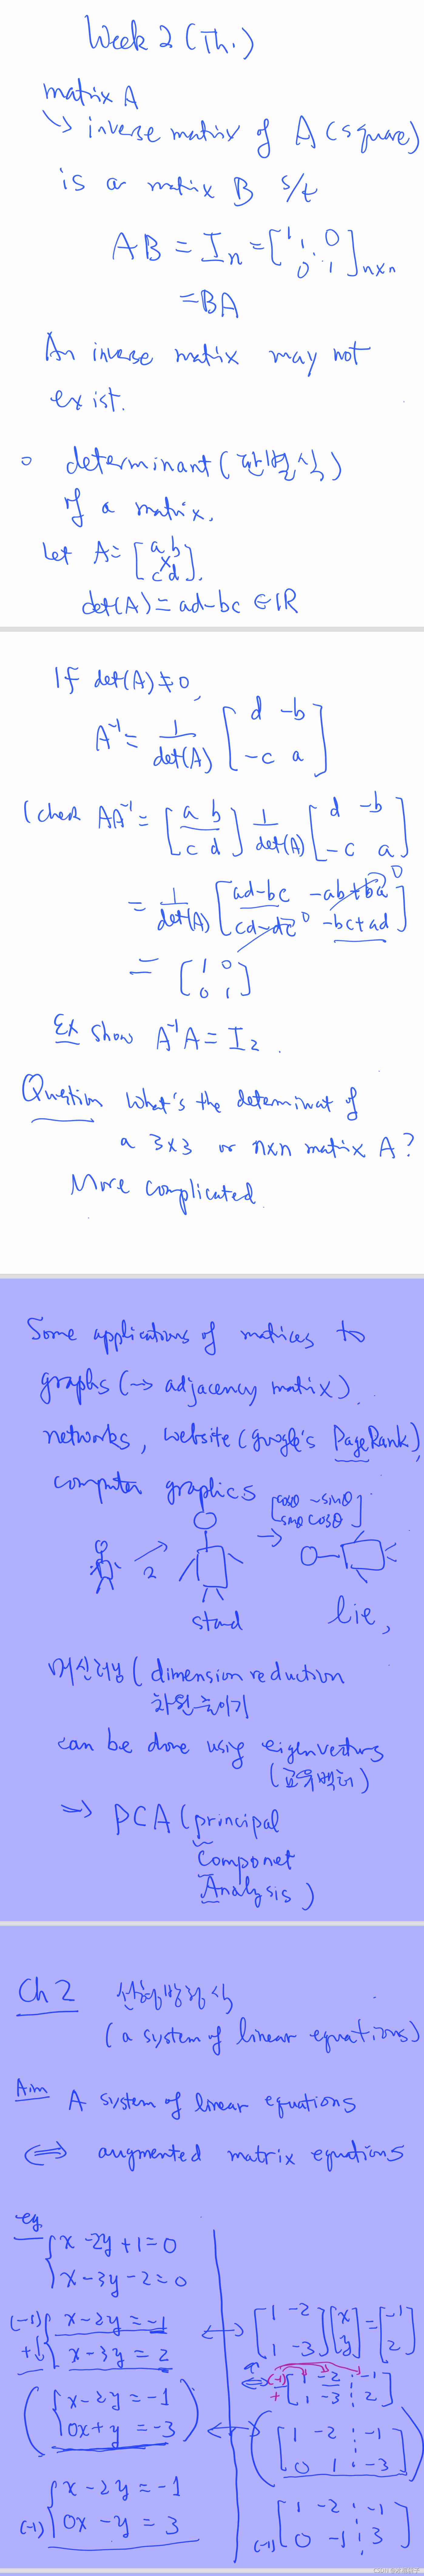 Week 2 (Th.)
matrix A
↳ inverse matrix of A (square)
is a matrix B s/t
AB = Iₙ = [1 1 0 0 ⋱ 1]ₙₓₙ
= BA
An inverse matrix may not
exist.
○ determinant (판별식)
of a matrix.
Let A = [a b; c d].
det(A) = ad-bc ∈ ℝ
If det(A) ≠ 0,
A⁻¹ = 1/det(A) [d -b; -c a]
(check AA⁻¹ = [a b; c d] 1/det(A) [d -b; -c a]
= 1/det(A) [ad-bc -ab+ba 0; cd-dc 0 -bc+ad]
= [1 0; 0 1]
Ex show A⁻¹A = I₂.
Question What's the determinat of
a 3x3 or nxn matrix A?
More complicated.
Some applications of matrices to
graphs (→ adjacency matrix).
networks, website (google's PageRank),
computer graphics
[cosθ -sinθ; sinθ cosθ]
2
→
stand
lie,
머신러닝 (dimension reduction
차원줄이기
can be done using eigenvectors
(고유벡터)
⇒ PCA (principal
Componet
Analysis)
Ch 2 선형방정식
(a system of linear equations)
Aim A system of linear equations
⟺ augmented matrix equations
eg
{x-2y+1=0
x-3y-2=0
(-1) {x-2y=-1 ↔ [1 -2; 1 -3][x; y]=[-1; 2]
+ x-3y=2
⟺ (-1) + [1 -2 ⋮ -1; 1 -3 ⋮ 2]
({x-2y=-1; 0x+y=-3) ↔ ([1 -2 ⋮ -1; 0 1 ⋮ -3])
{x-2y=-1 [1 -2 ⋮ -1
(-1) 0x-y=3 (-1) 0 -1 ⋮ 3]